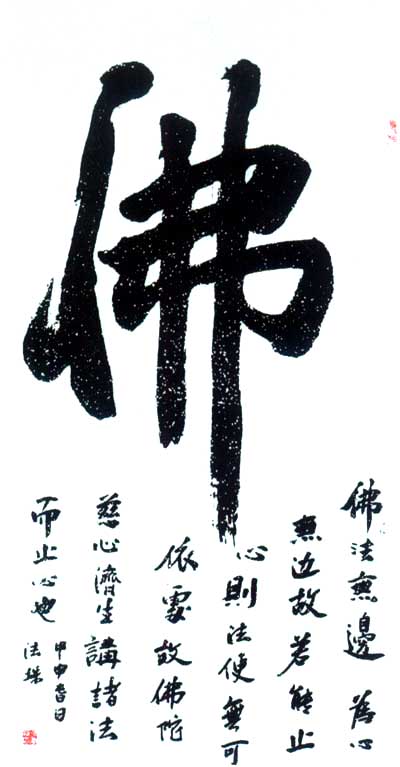 佛
佛法無邊為心
無边故若能止
心則法便無可
依處故佛陀
慈心濟生講諸法
而止心也
甲申春日
法珠